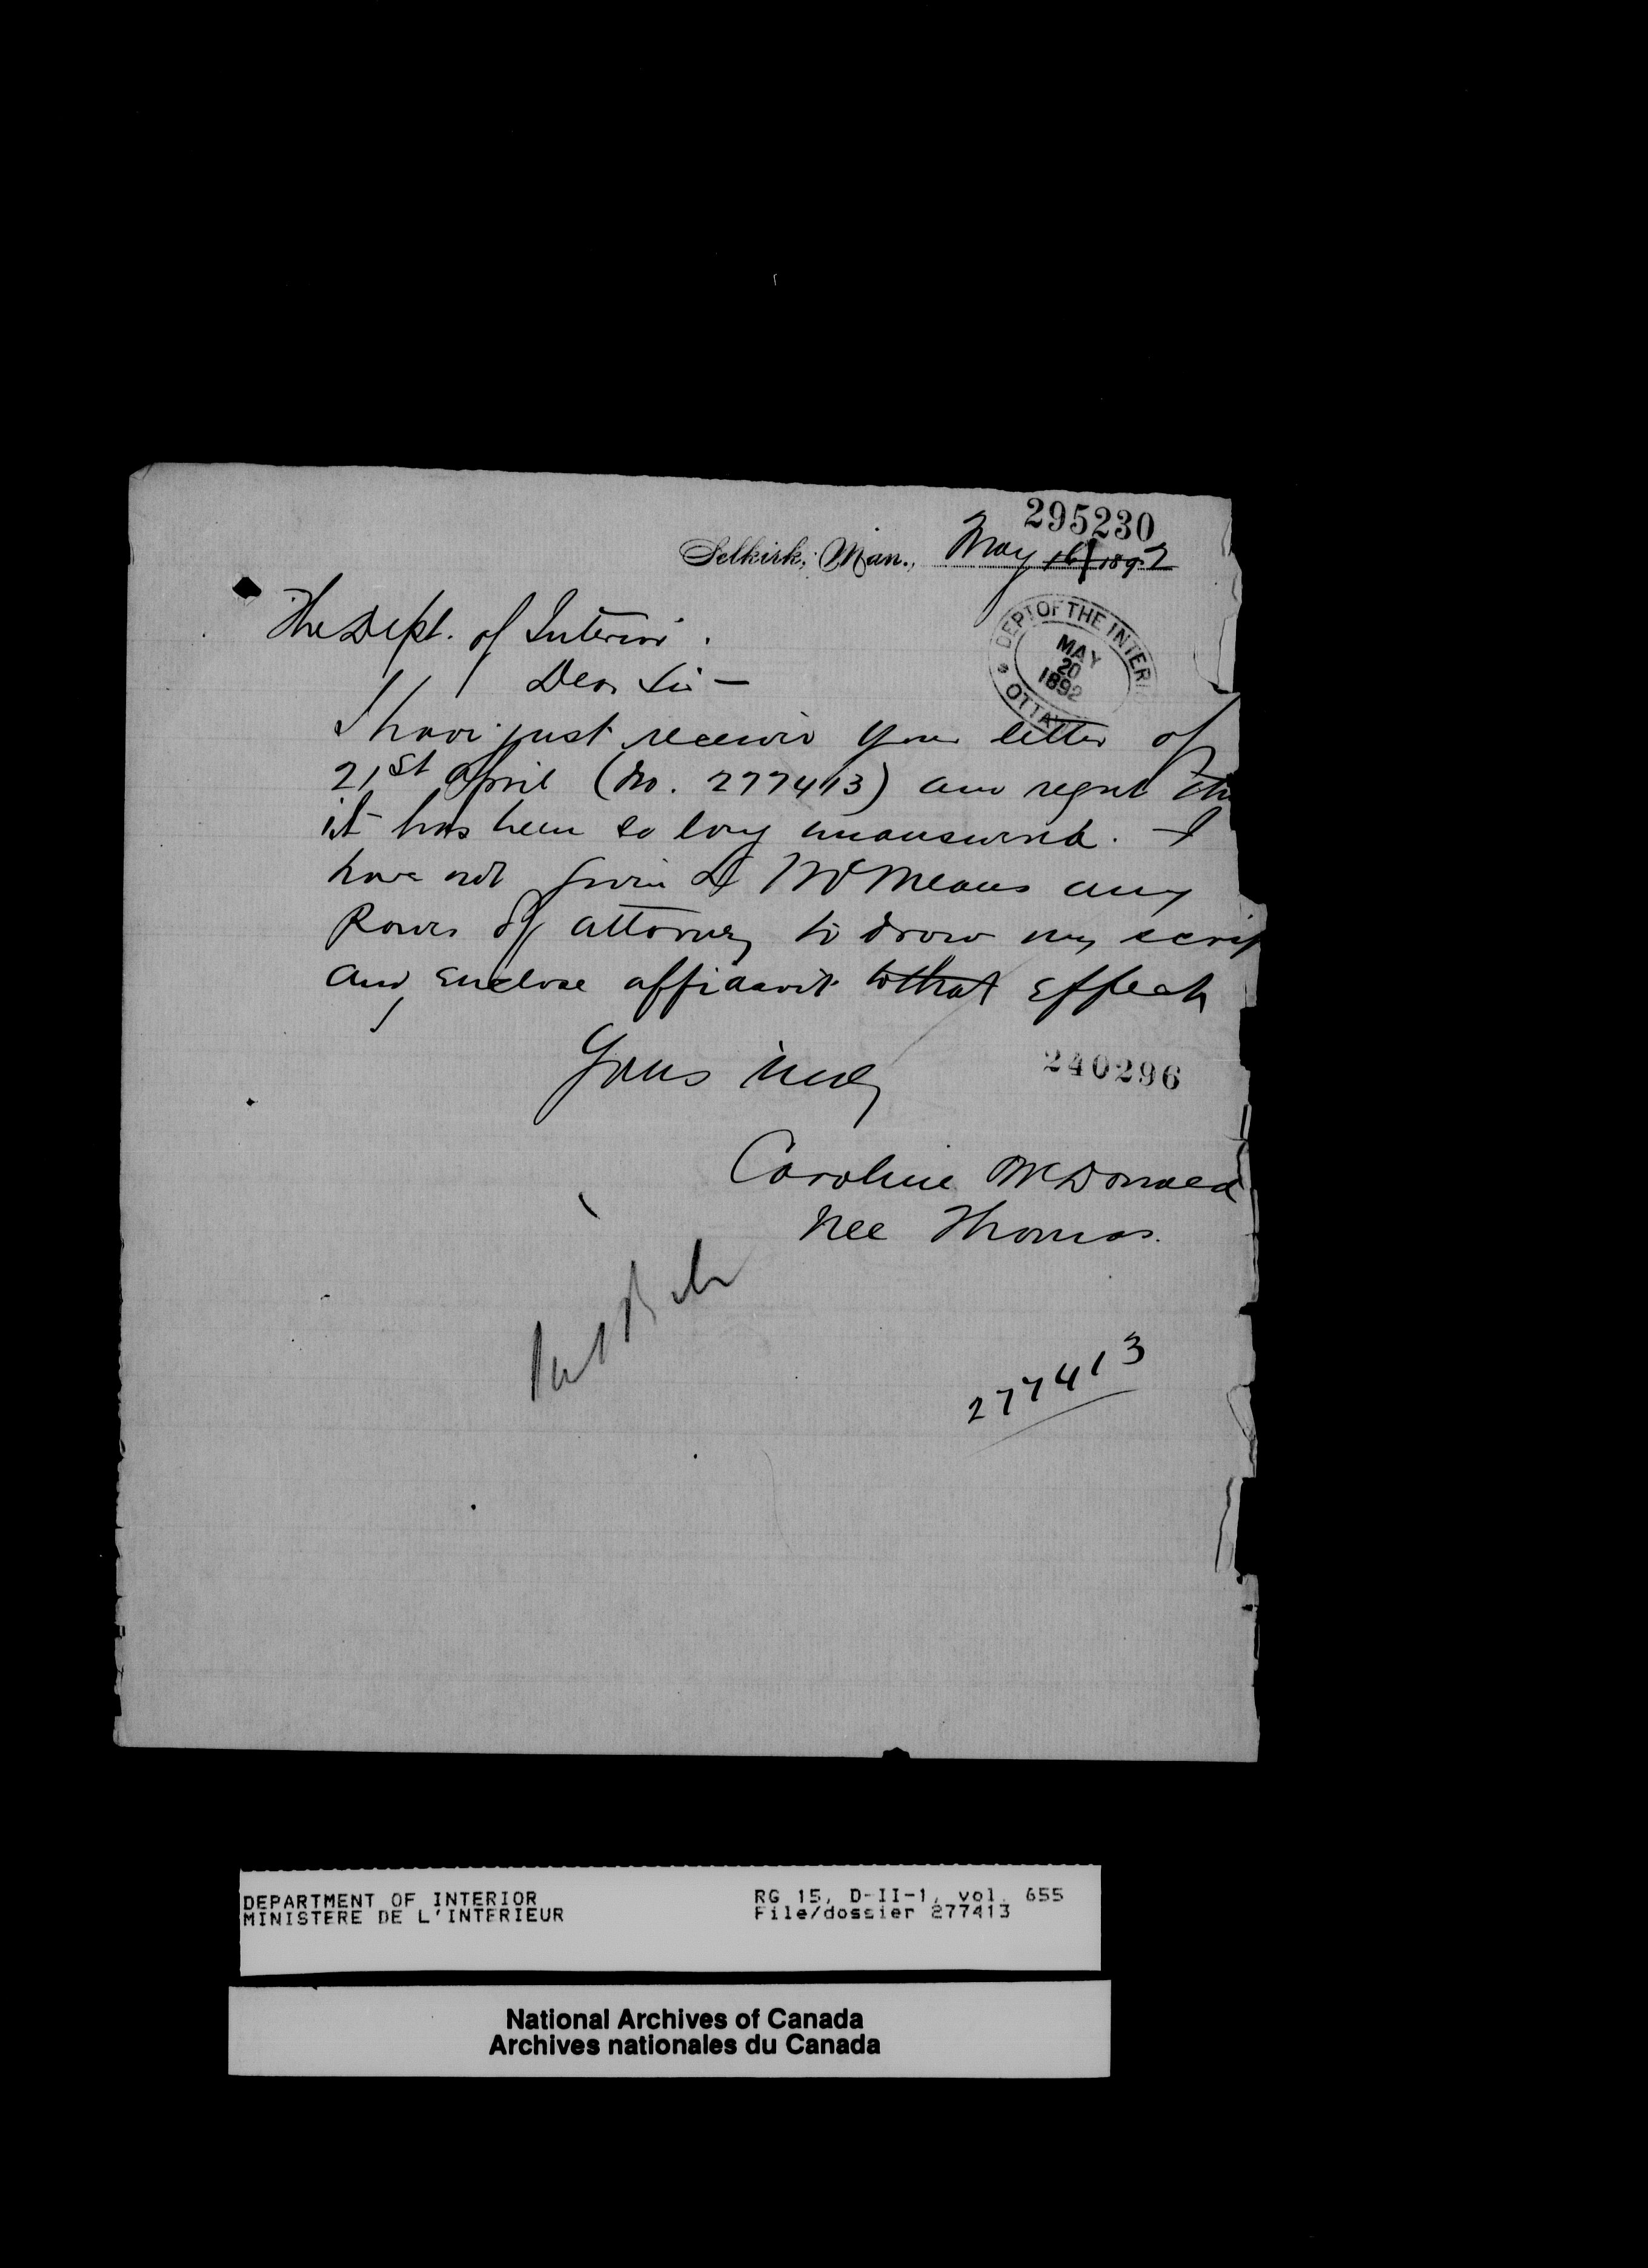 295230
Selkirk, Man., May 16/1892
The Dept. of Interior.
Dear Sir —
DEPT OF THE INTERIO
MAY
20
1892
OTTAW
I have just received your letter of
21st April (No. 277413) and regret tha
it has been so long unanswered. I
have not given L McMeans any
Power of attorney to draw my scrip
and enclose affidavit to that effect
Yours truly
240296
Caroline McDonald
Nee Thomas.
277413
DEPARTMENT OF INTERIOR
MINISTERE DE L'INTERIEUR
RG 15, D-II-1, vol. 655
File/dossier 277413
National Archives of Canada
Archives nationales du Canada